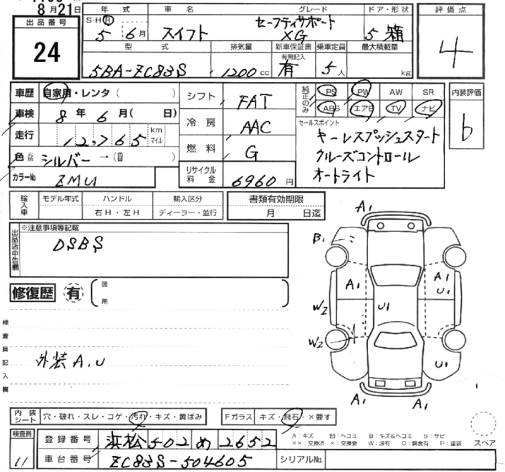 8月21日
出品番号 24
年式 車名 グレード ドア・形状 評価点
S・H・R 5年6月 スイフト セーフティサポート XG 5 箱 4
型式 排気量 新車保証書 乗車定員 最大積載量
5BA-ZC83S 1200cc 有無記入 有 5人 kg
車歴 自家用・レンタ( ) シフト FAT 純正のみ PS PW AW SR 内装評価
車検 8年6月(日) ABS エアB TV ナビ b
走行 12,765 km マイル 冷房 AAC セールスポイント
キーレスプッシュスタート
色 シルバー→( ) 燃料 G クルーズコントロール
カラーNo ZMU リサイクル料金 6960円 オートライト
輸入車 モデル年式 ハンドル 右H・左H 輸入区分 ディーラー・並行 書類有効期限 月 日迄
※注意事項等記載
DSBS
修復歴 有 箇所
検査員記入欄
外装A.U
A1
B1
A1 A1
U1
U1
W2
W2
A1
内装シート 穴・破れ・スレ・コゲ・汚れ・キズ・黄ばみ Fガラス キズ・飛石・×要す
検査員 11
登録番号 浜松502め2652
車台番号 ZC83S-504605 シリアルNo.
A:キズ U:ヘコミ B:キズ&ヘコミ S:サビ
スペア